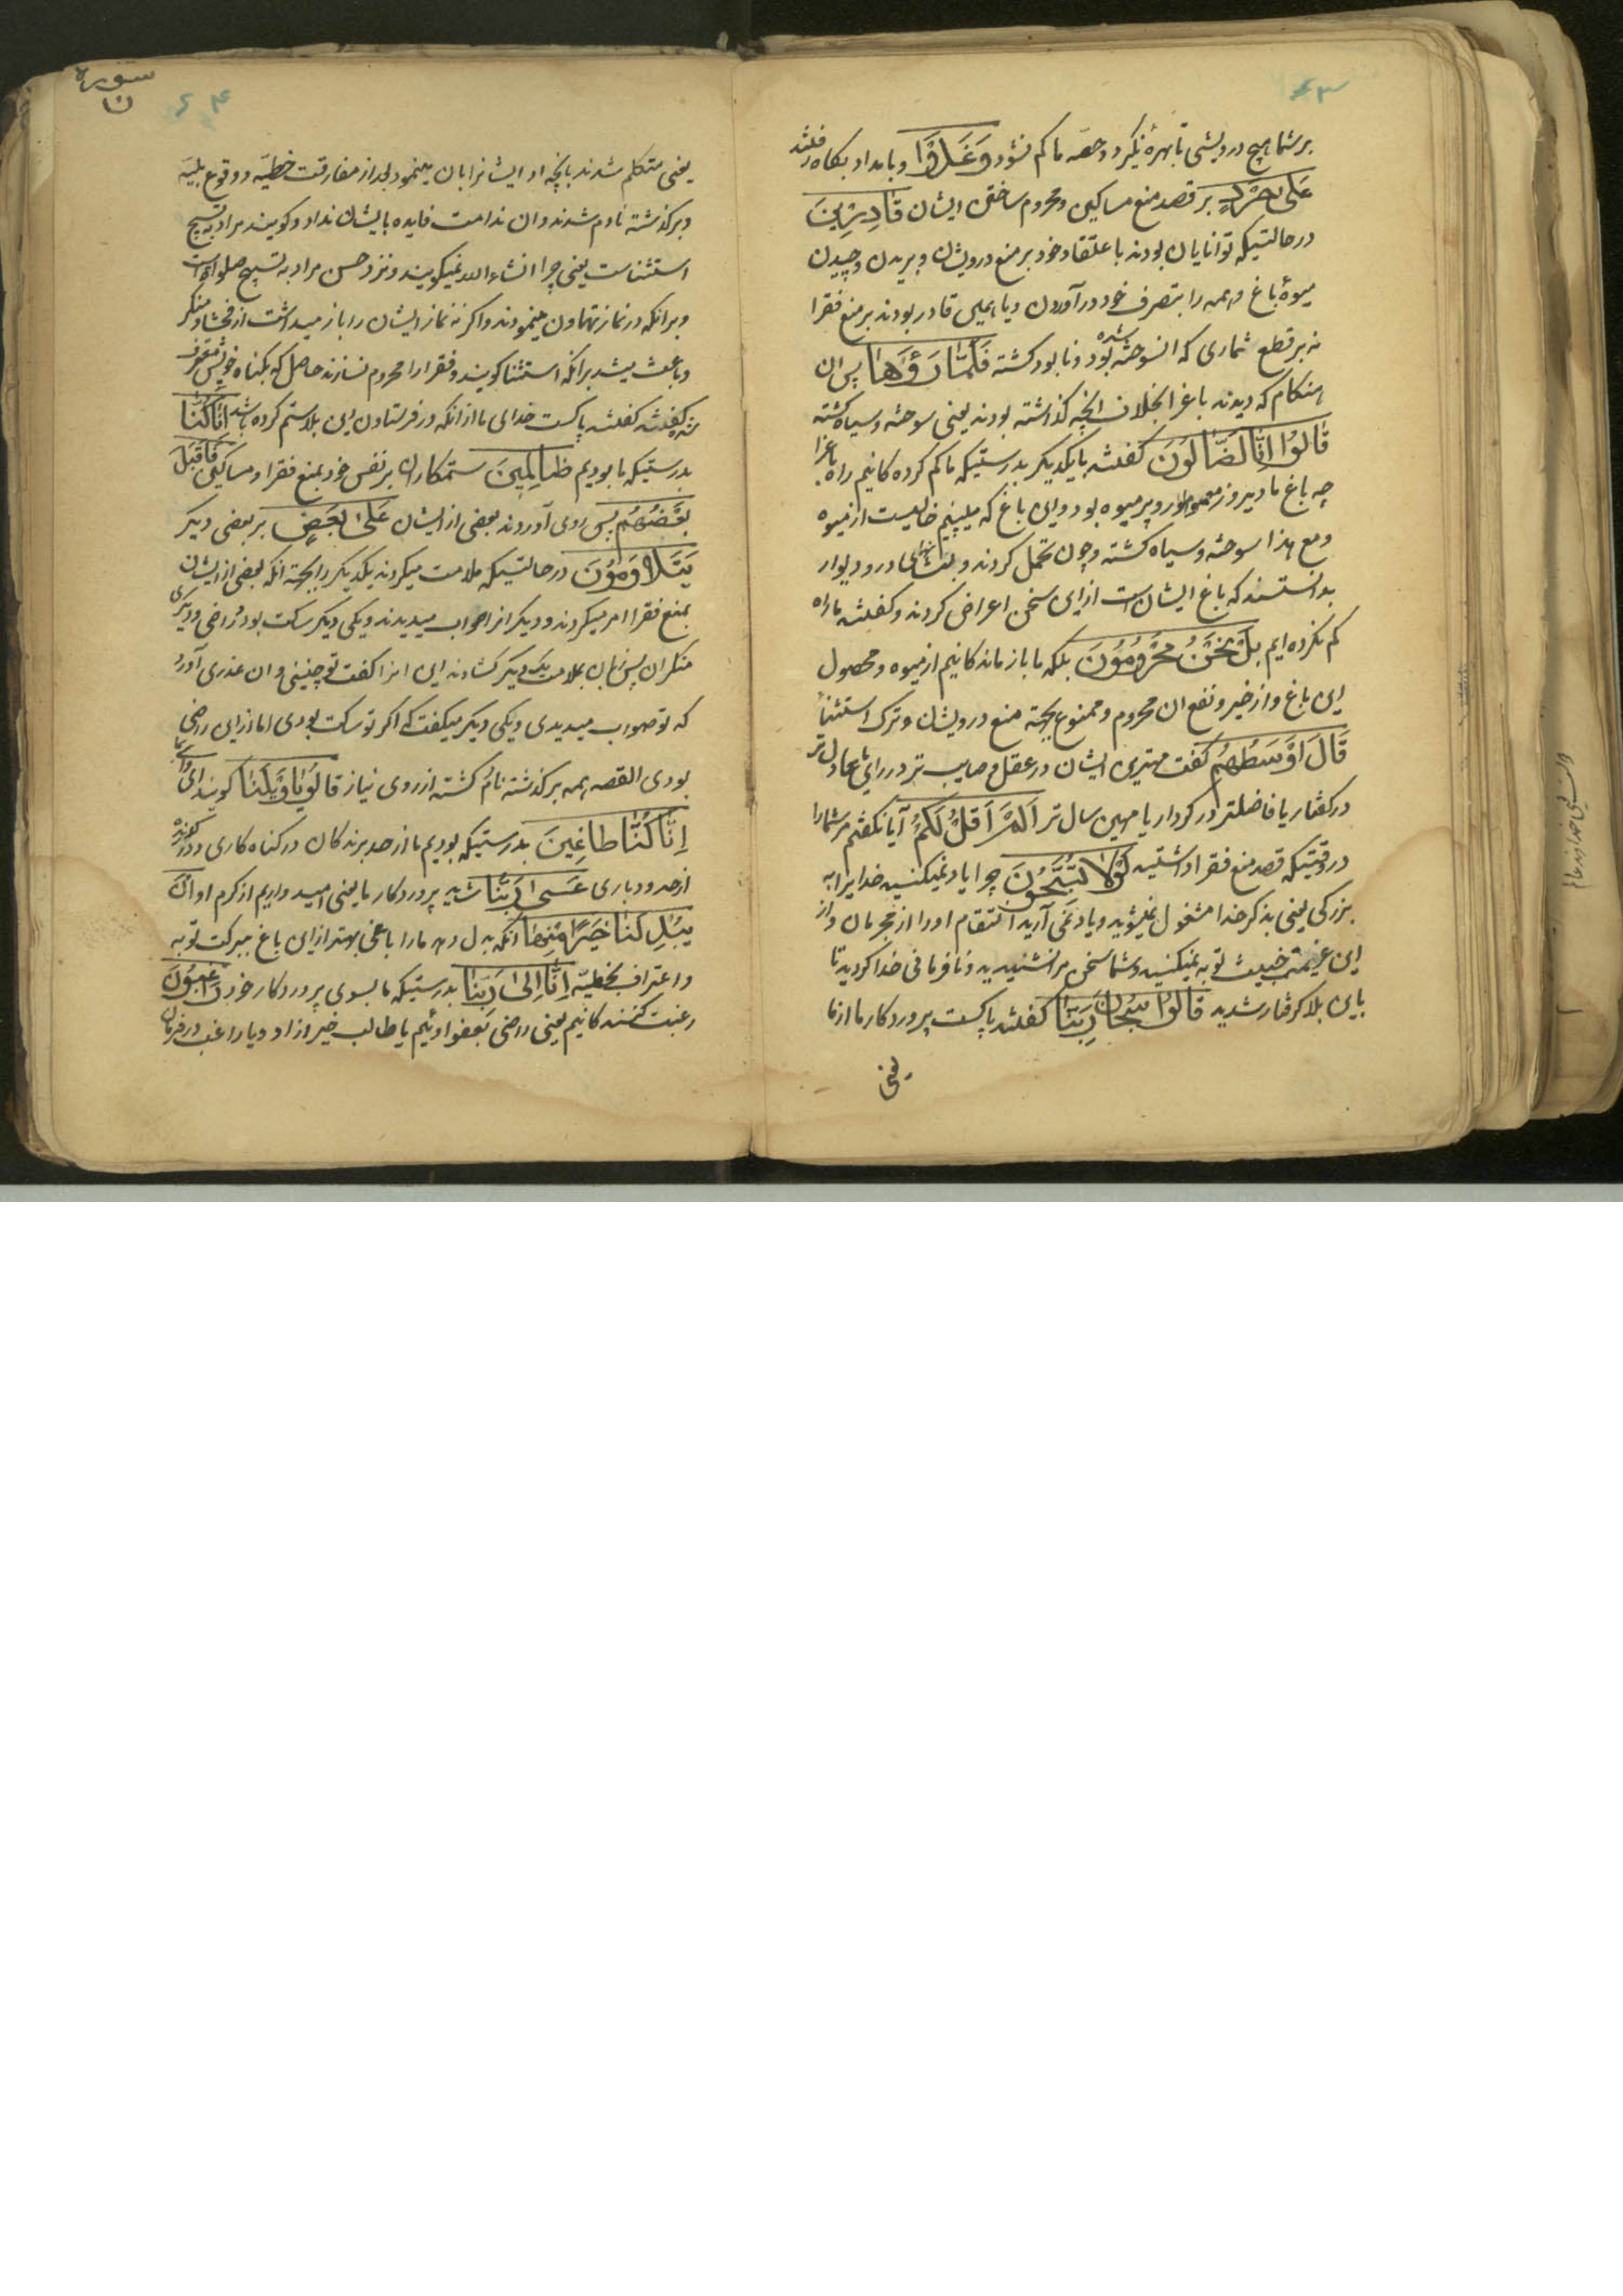 ۶۳
بر شما هیچ درویشی تا بهرهٔ نگیرد و حصّه ما کم نشود وَغَدَوْا و بامداد بکاه رفتند
عَلیٰ حَرْدٍ بر قصد منع مساکین و محروم ساختن ایشان قَادِرِینَ
در حالتیکه توانایان بودند باعتقاد خود بر منع درویشان و بریدن و چیدن
میوهٔ باغ و همه را بتصرف خود در آوردن و یا همین قادر بودند بر منع فقرا
نه بر قطع ثماری که انسوخته شده بود و نابود کشته فَلَمَّا رَأَوْهَا پس ان
هنکام که دیدند باغ را بخلاف انچه کذاشته بودند یعنی سوخته و سیاه کشته
قَالُوا اِنَّا لَضَالُّونَ کفتند با یکدیکر بدرستیکه ما کم کرده کانیم راه باغ را
چه باغ ما دیروز معمور و پر میوه بود و این باغ که میبینیم خالیست از میوه
و مع هذا سوخته و سیاه کشته و چون تحمل کردند و بنشانهای در و دیوار
بدانستند که باغ ایشان است ازین سخن اعراض کردند و کفتند ما راه
کم نکرده ایم بَلْ نَحْنُ مَحْرُومُونَ بلکه ما بازماندکانیم از میوه و محصول
این باغ و از خیر و نفع ان محروم و ممنوع بجهة منع درویشان و ترک استثنا
قَالَ اَوْسَطُهُمْ کفت مهترین ایشان در عقل و صایب تر در رای یا عادل تر
در کفتار یا فاضلتر در کردار یا مهین سال تر اَلَمْ اَقُلْ لَکُمْ آیا نکفتم مر شما را
در وقتیکه قصد منع فقرا داشتید لَوْلَا تُسَبِّحُونَ چرا یاد نمیکنید خدایرا به
بزرکی یعنی بذکر خدا مشغول نمیشوید و یاد نمی آرید انتقام او را از مجرمان و از
این عزیمت خبیث توبه نمیکنید و شما سخن مرا نشنیدید و نافرمانی خدا کردید تا
باین بلا کرفتار شدید قَالُوا سُبْحَانَ رَبِّنَا کفتند پاکست پروردکار ما از ما
یعنی
سورة
ن
۶۴
یعنی متکلم شدند بانچه او ایشانرا بان مینمود بعد از مفارقت خطیّه و وقوع بلیّه
و بر کذشته نادم شدند و ان ندامت فایده بایشان نداد و کویند مراد به تسبیح
استثناست یعنی چرا انشاء الله نمیکویند و نزد حسن مراد به تسبیح صلواة است
و برانکه در نماز تهاون مینمودند و اکر نه نماز ایشان را باز میداشت از فحشا و منکر
و باعث میشد برانکه استثنا کویند و فقرا را محروم نسازند حاصل که بکناه خویش معترف
شده کفتند پاکست خدای ما از انکه در فرستادن این بلا ستم کرده باشد اِنَّا کُنَّا
بدرستیکه ما بودیم ظَالِمِینَ ستمکاران بر نفس خود بمنع فقرا و مساکین فَاَقْبَلَ
بَعْضُهُمْ پس روی آوردند بعضی از ایشان عَلیٰ بَعْضٍ بر بعضی دیکر
یَتَلَاوَمُونَ در حالتیکه ملامت میکردند یکدیکر را بجهة انکه بعضی از ایشان
بمنع فقرا امر میکردند و دیکر انرا صواب میدیدند و یکی دیکر ساکت بود و راضی و دیکری
منکر ان پس زبان بملامت یکدیکر کشادند این انرا کفت تو چنینی و ان عذری آورد
که تو صواب میدیدی و یکی دیکر میکفت که اکر تو ساکت بودی اما ازین راضی
بودی القصه همه بر کذشته نادم کشته از روی نیاز قَالُوا یَا وَیْلَنَا کویند ای وای بر ما
اِنَّا کُنَّا طَاغِینَ بدرستیکه بودیم ما از حد برندکان در کناه کاری و درکذرنده
از حدود باری عَسیٰ رَبُّنَا شاید پروردکار ما یعنی امید واریم از کرم او اَنْ
یُبْدِلَنَا خَیْرًا مِنْهَا انکه بدل دهد ما را باغی بهتر ازین باغ ببرکت توبه
و اعتراف بخطیّه اِنَّا اِلیٰ رَبِّنَا بدرستیکه ما بسوی پروردکار خود رَاغِبُونَ
رغبت کنندکانیم یعنی راضی بعفو اوئیم یا طالب خیر از او و یا راغب در فرمان